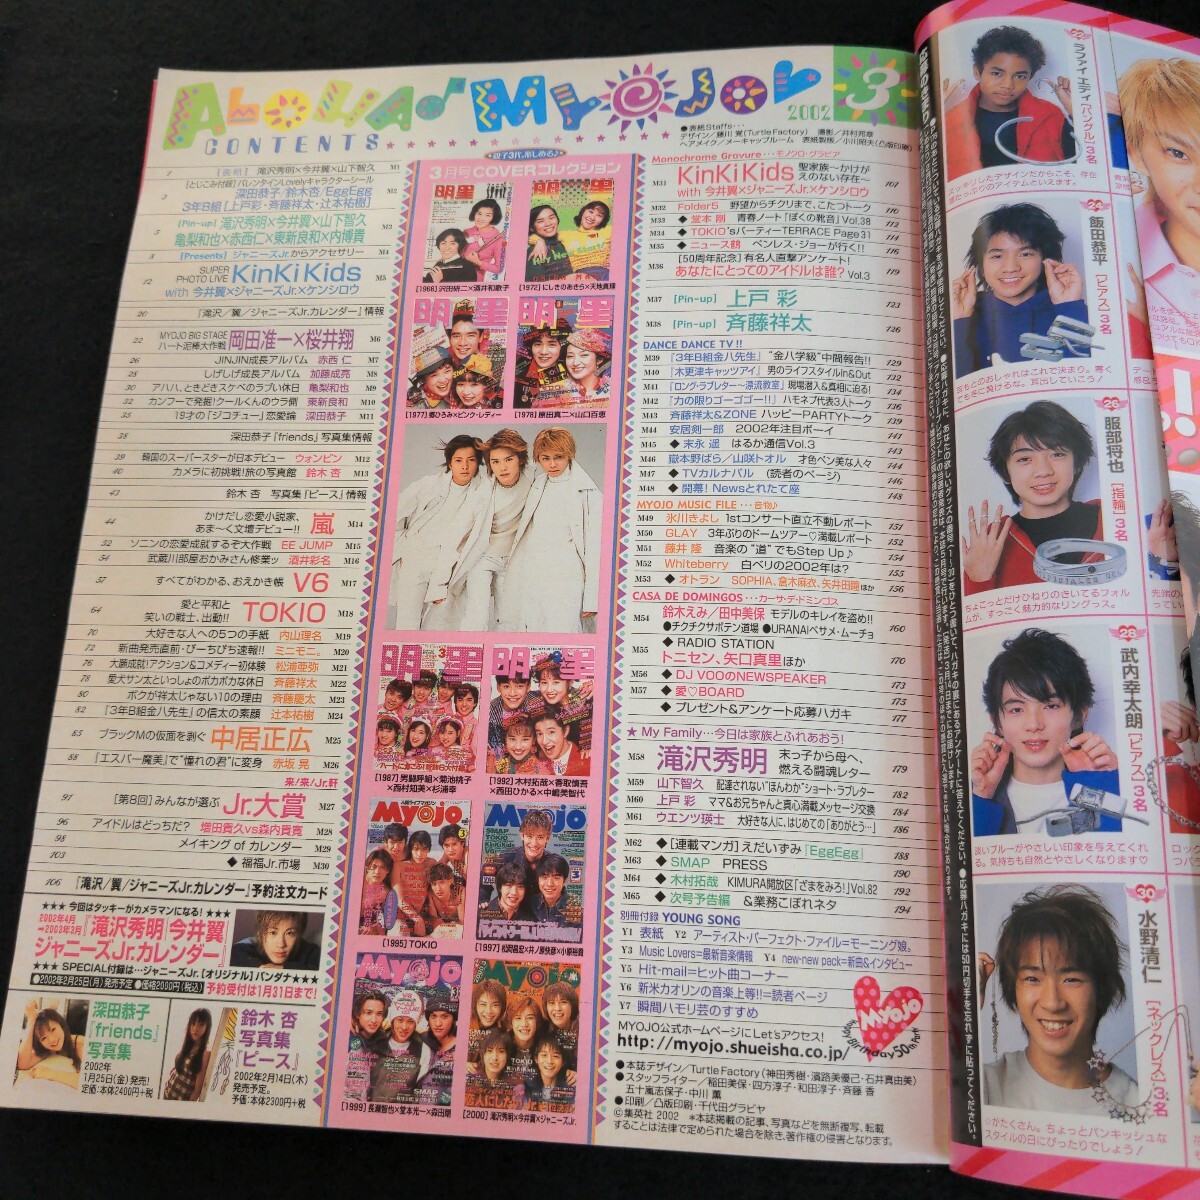 Aloha Myojo
2002 3
CONTENTS
●表紙Staffs…
デザイン/藤川 覚(Turtle Factory) 撮影/井村邦章
ヘアメイク/メーキャップルーム 表紙製版/小川昭夫(凸版印刷)
[表紙] 滝沢秀明×今井翼×山下智久 M1
[とじこみ付録] バレンタインLovelyキャラクターシール
深田恭子/鈴木杏/EggEgg M2
3年B組[上戸彩・斉藤祥太・辻本祐樹]
5 [Pin-up] 滝沢秀明×今井翼×山下智久
亀梨和也×赤西仁×東新良和×内博貴 M3
[Presents] ジャニーズJr.からアクセサリー M4
12 SUPER PHOTO LIVE KinKi Kids M5
with 今井翼×ジャニーズJr.×ケンシロウ
20 『滝沢/翼/ジャニーズJr.カレンダー』情報
22 MYOJO BIG STAGE
ハート泥棒大作戦 岡田准一×桜井翔 M6
26 JINJIN成長アルバム 赤西 仁 M7
28 しげしげ成長アルバム 加藤成亮 M8
30 アハハ、ときどきスケベのラブい休日 亀梨和也 M9
32 カンフーで発掘!クールくんのウラ側 東新良和 M10
35 19才の「ジコチュー」恋愛論 深田恭子 M11
38 深田恭子『friends』写真集情報
39 韓国のスーパースターが日本デビュー ウォンビン M12
40 カメラに初挑戦!旅の写真館 鈴木 杏 M13
43 鈴木 杏 写真集『ピース』情報
44 かけだし恋愛小説家、
あま〜く文壇デビュー!! 嵐 M14
52 ソニンの恋愛成就するぞ大作戦 EE JUMP M15
54 武蔵川部屋おかみさん修業ッ 酒井彩名 M16
57 すべてがわかる、おえかき帳 V6 M17
64 愛と平和と
笑いの戦士、出動!! TOKIO M18
70 大好きな人への5つの手紙 内山理名 M19
72 新曲発売直前・ぴーちぴち速報!! ミニモニ。 M20
76 大願成就!アクション&コメディー初体験 松浦亜弥 M21
78 愛犬サン太といっしょのポカポカな休日 斉藤祥太 M22
80 ボクが祥太じゃない10の理由 斉藤慶太 M23
82 『3年B組金八先生』の信太の素顔 辻本祐樹 M24
85 ブラックMの仮面を剥ぐ 中居正広 M25
88 『エスパー魔美』で"憧れの君"に変身 赤坂 晃 M26
来/来/Jr.軒
91 [第8回] みんなが選ぶ Jr.大賞 M27
96 アイドルはどっちだ? 増田貴久vs森内貴寛 M28
98 メイキング of カレンダー M29
103 ◆ 福福Jr.市場 M30
106 『滝沢/翼/ジャニーズJr.カレンダー』予約注文カード
★★★ 今回はタッキーがカメラマンになる! ★★★
2002年4月
→2003年3月 『滝沢秀明 今井翼
ジャニーズJr.カレンダー』
★★★ SPECIAL付録は…ジャニーズJr.[オリジナル]バンダナ ★★★
●2002年2月25日(月)発売予定 ●価格2000円(税込) 予約受付は1月31日まで!
深田恭子
『friends』
写真集
2002年
1月25日(金)発売!
定価:本体2400円+税
鈴木 杏
写真集
『ピース』
2002年2月14日(木)
発売予定。
予価:本体2300円+税
★親子3代、楽しめる♪
3月号COVERコレクション
[1968] 沢田研二×酒井和歌子
[1972] にしきのあきら×天地真理
[1977] 郷ひろみ×ピンク・レディー
[1978] 原田真二×山口百恵
[1987] 男闘呼組×菊池桃子
×西村知美×杉浦幸
[1992] 木村拓哉×香取慎吾
×西田ひかる×中嶋美智代
[1995] TOKIO
[1999] 長瀬智也×堂本光一×森田剛
[2000] 滝沢秀明×今井翼×ジャニーズJr.
Monochrome Gravure…モノクロ・グラビア
M31 KinKi Kids 聖家族〜かけが
えのない存在〜 107
with 今井翼×ジャニーズJr.×ケンシロウ
M32 Folder5 野望からチクリまで、こたつトーク 110
M33 ◆ 堂本 剛 青春ノート「ぼくの靴音」Vol.38
M34 ◆ TOKIO'sパーティーTERRACE Page31 114
M35 ◆ ニュース鶴 ペンレス・ジョーが行く!! 116
M36 [50周年記念] 有名人直撃アンケート!
あなたにとってのアイドルは誰? Vol.3 119
M37 [Pin-up] 上戸 彩 123
M38 [Pin-up] 斉藤祥太 126
DANCE DANCE TV!!
M39 『3年B組金八先生』"金八学級"中間報告!! 129
M40 『木更津キャッツアイ』男のライフスタイルIn&Out 132
M41 『ロング・ラブレター〜漂流教室』現場潜入&真相に迫る! 134
M42 『力の限りゴーゴゴー!!』ハモネプ代表3人トーク 136
M43 斉藤祥太&ZONE ハッピーPARTYトーク 139
M44 安居剣一郎 2002年注目ボーイ 141
M45 ◆ 末永 遥 はるか通信Vol.3 143
M46 嶽本野ばら/山咲トオル 才色ペン美な人々 144
M47 ◆ TVカルナバル (読者のページ) 146
M48 ◆ 開幕! Newsとれたて座 148
MYOJO MUSIC FILE…音物♪
M49 氷川きよし 1stコンサート直立不動レポート 151
M50 GLAY 3年ぶりのドームツアー♡満載レポート 152
M51 藤井 隆 音楽の"道"でもStep Up♪ 154
M52 Whiteberry 白ベリの2002年は? 155
M53 ◆ オトラン SOPHIA、倉木麻衣、矢井田瞳ほか 156
CASA DE DOMINGOS…カーサ・デ・ドミンゴス
M54 鈴木えみ/田中美保 モデルのキレイを盗め!!
●チクチクサボテン道場 ●URANAIベサメ・ムーチョ 160
M55 ◆ RADIO STATION
トニセン、矢口真里ほか 170
M56 ◆ DJ VOOのNEWSPEAKER 173
M57 ◆ 愛♡BOARD 175
◆ プレゼント&アンケート応募ハガキ 177
★ My Family…今日は家族とふれあおう!
M58 滝沢秀明 末っ子から母へ、
燃える闘魂レター 179
M59 山下智久 配達されない"ほんわか"ショート・ラブレター 182
M60 上戸 彩 ママ&お兄ちゃんと真心満載メッセージ交換 184
M61 ウエンツ瑛士 大好きな人に、はじめての「ありがとう…」 186
M62 ◆ [連載マンガ] えだいずみ『EggEgg』 188
M63 ◆ SMAP PRESS 190
M64 ◆ 木村拓哉 KIMURA開放区「ざまをみろ!」Vol.82 192
M65 ◆ 次号予告編 &業務こぼれネタ 194
別冊付録 YOUNG SONG
Y1 表紙 Y2 アーティスト・パーフェクト・ファイル=モーニング娘。
Y3 Music Lovers=最新音楽情報 Y4 new-new pack=新曲&インタビュー
Y5 Hit-mail=ヒット曲コーナー
Y6 新米カオリンの音楽上等!!=読者ページ
Y7 瞬間ハモリ芸のすすめ
MYOJO公式ホームページにLet'sアクセス!
http://myojo.shueisha.co.jp/
Myojo
Happy Birthday 50th Party
●本誌デザイン/Turtle Factory(神田秀樹・濱路美優己・石井真由美)
●スタッフライター/稲田美保・四方淳子・和田淳子・斉藤 香
五十嵐志保子・中川 薫
●印刷/凸版印刷・千代田グラビヤ
©集英社 2002 *本誌掲載の記事、写真などを無断複写、転載
することは法律で定められた場合を除き、著作権の侵害となります。
22 ラファイ エディ [バングル] 3名
スッキリしたデザインだからこそ、存在
感たっぷりのアイテムといえます。
24 飯田恭平 [ピアス] 3名
26 服部将也 [指輪] 3名
ちょこっとだけひねりのきいてるフォル
ムが、すっごく魅力的なリングっス。
28 武内幸太朗 [ピアス] 3名
淡いブルーがやさしい印象を与えてくれ
る。気持ちも自然とやさしくなります♡
30 水野清仁 [ネックレス] 3名
☆がたくさん。ちょっとパンキッシュな
スタイルの日にぴったりでしょう!